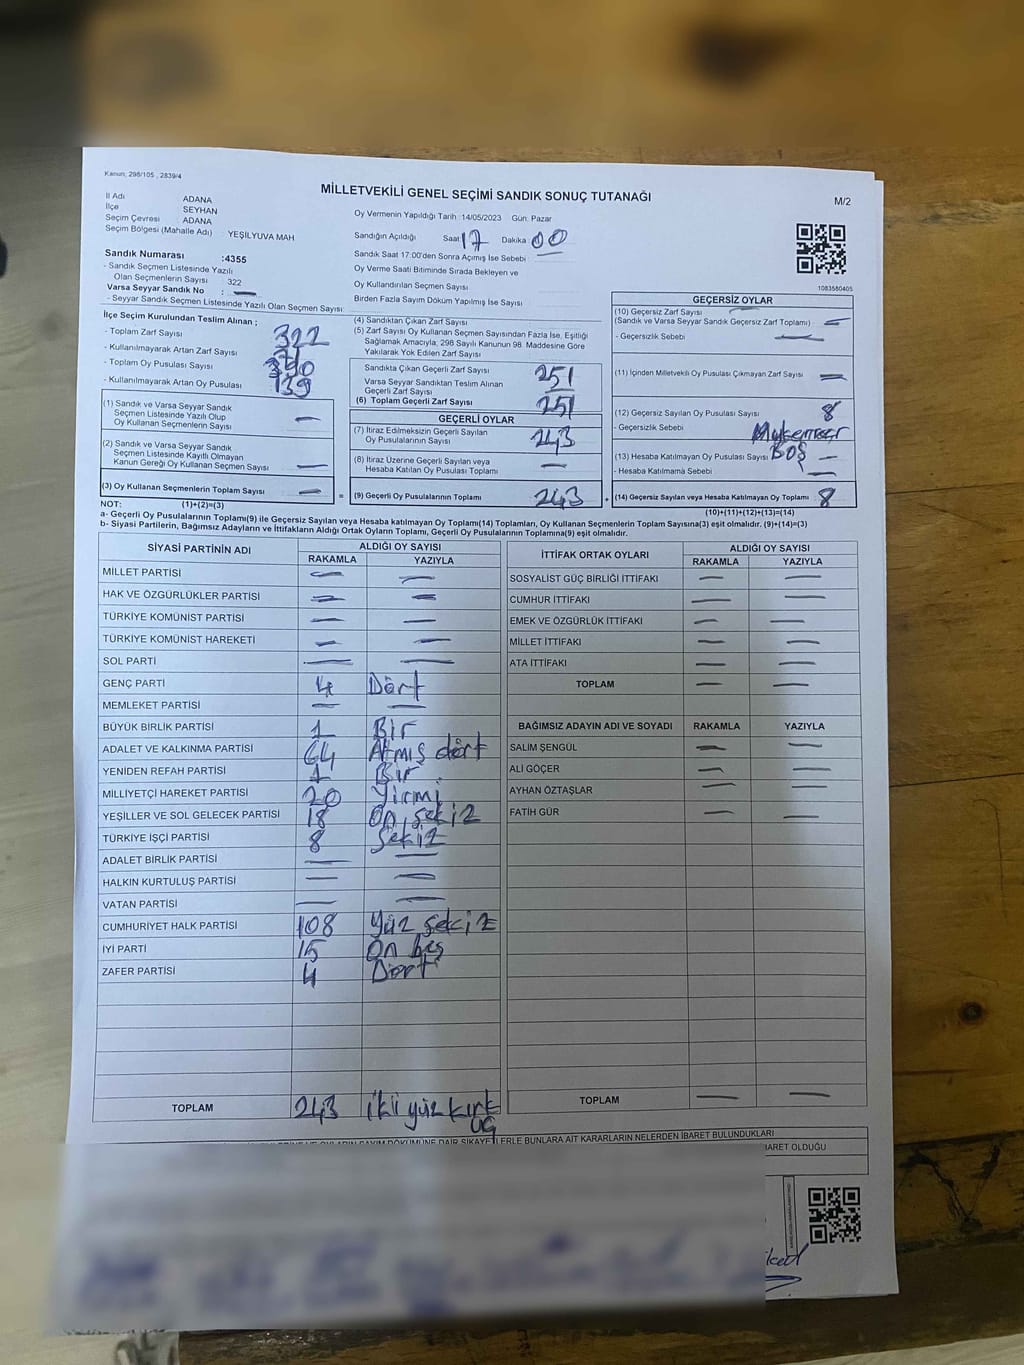 Kanun, 298/105 , 2839/4
MİLLETVEKİLİ GENEL SEÇİMİ SANDIK SONUÇ TUTANAĞI
M/2
İl Adı ADANA
İlçe SEYHAN
Seçim Çevresi ADANA
Seçim Bölgesi (Mahalle Adı) YEŞİLYUVA MAH
Sandık Numarası :4355
- Sandık Seçmen Listesinde Yazılı
Olan Seçmenlerin Sayısı 322
Varsa Seyyar Sandık No : —
- Seyyar Sandık Seçmen Listesinde Yazılı Olan Seçmen Sayısı:
Oy Vermenin Yapıldığı Tarih :14/05/2023 Gün: Pazar
Sandığın Açıldığı Saat: 17 Dakika: 00
Sandık Saat 17:00'den Sonra Açımış İse Sebebi
Oy Verme Saati Bitiminde Sırada Bekleyen ve
Oy Kullandırılan Seçmen Sayısı
Birden Fazla Sayım Döküm Yapılmış İse Sayısı
1083580405
İlçe Seçim Kurulundan Teslim Alınan ;
- Toplam Zarf Sayısı 322
- Kullanılmayarak Artan Zarf Sayısı
- Toplam Oy Pusulası Sayısı
- Kullanılmayarak Artan Oy Pusulası 139
(1) Sandık ve Varsa Seyyar Sandık
Seçmen Listesinde Yazılı Olup
Oy Kullanan Seçmenlerin Sayısı —
(2) Sandık ve Varsa Seyyar Sandık
Seçmen Listesinde Kayıtlı Olmayan
Kanun Gereği Oy Kullanan Seçmen Sayısı —
(3) Oy Kullanan Seçmenlerin Toplam Sayısı —
(4) Sandıktan Çıkan Zarf Sayısı
(5) Zarf Sayısı Oy Kullanan Seçmen Sayısından Fazla İse, Eşitliği
Sağlamak Amacıyla, 298 Sayılı Kanunun 98. Maddesine Göre
Yakılarak Yok Edilen Zarf Sayısı
Sandıkta Çıkan Geçerli Zarf Sayısı 251
Varsa Seyyar Sandıktan Teslim Alınan
Geçerli Zarf Sayısı
(6) Toplam Geçerli Zarf Sayısı 251
GEÇERLİ OYLAR
(7) İtiraz Edilmeksizin Geçerli Sayılan
Oy Pusulalarının Sayısı 243
(8) İtiraz Üzerine Geçerli Sayılan veya
Hesaba Katılan Oy Pusulası Toplamı —
= (9) Geçerli Oy Pusulalarının Toplamı 243
GEÇERSİZ OYLAR
(10) Geçersiz Zarf Sayısı
(Sandık ve Varsa Seyyar Sandık Geçersiz Zarf Toplamı) —
- Geçersizlik Sebebi —
(11) İçinden Milletvekili Oy Pusulası Çıkmayan Zarf Sayısı —
(12) Geçersiz Sayılan Oy Pusulası Sayısı 8
- Geçersizlik Sebebi
(13) Hesaba Katılmayan Oy Pusulası Sayısı BOŞ —
- Hesaba Katılmama Sebebi —
+ (14) Geçersiz Sayılan veya Hesaba Katılmayan Oy Toplamı 8
NOT: (1)+(2)=(3) (10)+(11)+(12)+(13)=(14)
a- Geçerli Oy Pusulalarının Toplamı(9) ile Geçersiz Sayılan veya Hesaba katılmayan Oy Toplamı(14) Toplamları, Oy Kullanan Seçmenlerin Toplam Sayısına(3) eşit olmalıdır. (9)+(14)=(3)
b- Siyasi Partilerin, Bağımsız Adayların ve İttifakların Aldığı Ortak Oyların Toplamı, Geçerli Oy Pusulalarının Toplamına(9) eşit olmalıdır.
SİYASİ PARTİNİN ADI ALDIĞI OY SAYISI
RAKAMLA YAZIYLA
MİLLET PARTİSİ — —
HAK VE ÖZGÜRLÜKLER PARTİSİ — —
TÜRKİYE KOMÜNİST PARTİSİ — —
TÜRKİYE KOMÜNİST HAREKETİ — —
SOL PARTİ — —
GENÇ PARTİ 4 Dört
MEMLEKET PARTİSİ — —
BÜYÜK BİRLİK PARTİSİ 1 Bir
ADALET VE KALKINMA PARTİSİ 64 Atmış dört
YENİDEN REFAH PARTİSİ 1 Bir
MİLLİYETÇİ HAREKET PARTİSİ 20 Yirmi
YEŞİLLER VE SOL GELECEK PARTİSİ 18 On sekiz
TÜRKİYE İŞÇİ PARTİSİ 8 Sekiz
ADALET BİRLİK PARTİSİ — —
HALKIN KURTULUŞ PARTİSİ — —
VATAN PARTİSİ — —
CUMHURİYET HALK PARTİSİ 108 Yüz sekiz
İYİ PARTİ 15 On beş
ZAFER PARTİSİ 4 Dört
TOPLAM 243 iki yüz kırk
üç
İTTİFAK ORTAK OYLARI ALDIĞI OY SAYISI
RAKAMLA YAZIYLA
SOSYALİST GÜÇ BİRLİĞİ İTTİFAKI — —
CUMHUR İTTİFAKI — —
EMEK VE ÖZGÜRLÜK İTTİFAKI — —
MİLLET İTTİFAKI — —
ATA İTTİFAKI — —
TOPLAM — —
BAĞIMSIZ ADAYIN ADI VE SOYADI RAKAMLA YAZIYLA
SALİM ŞENGÜL — —
ALİ GÖÇER — —
AYHAN ÖZTAŞLAR — —
FATİH GÜR — —
TOPLAM — —
DÖKÜMÜNE DAİR ŞİKAYETLERLE BUNLARA AİT KARARLARIN NELERDEN İBARET BULUNDUKLARI
İBARET OLDUĞU